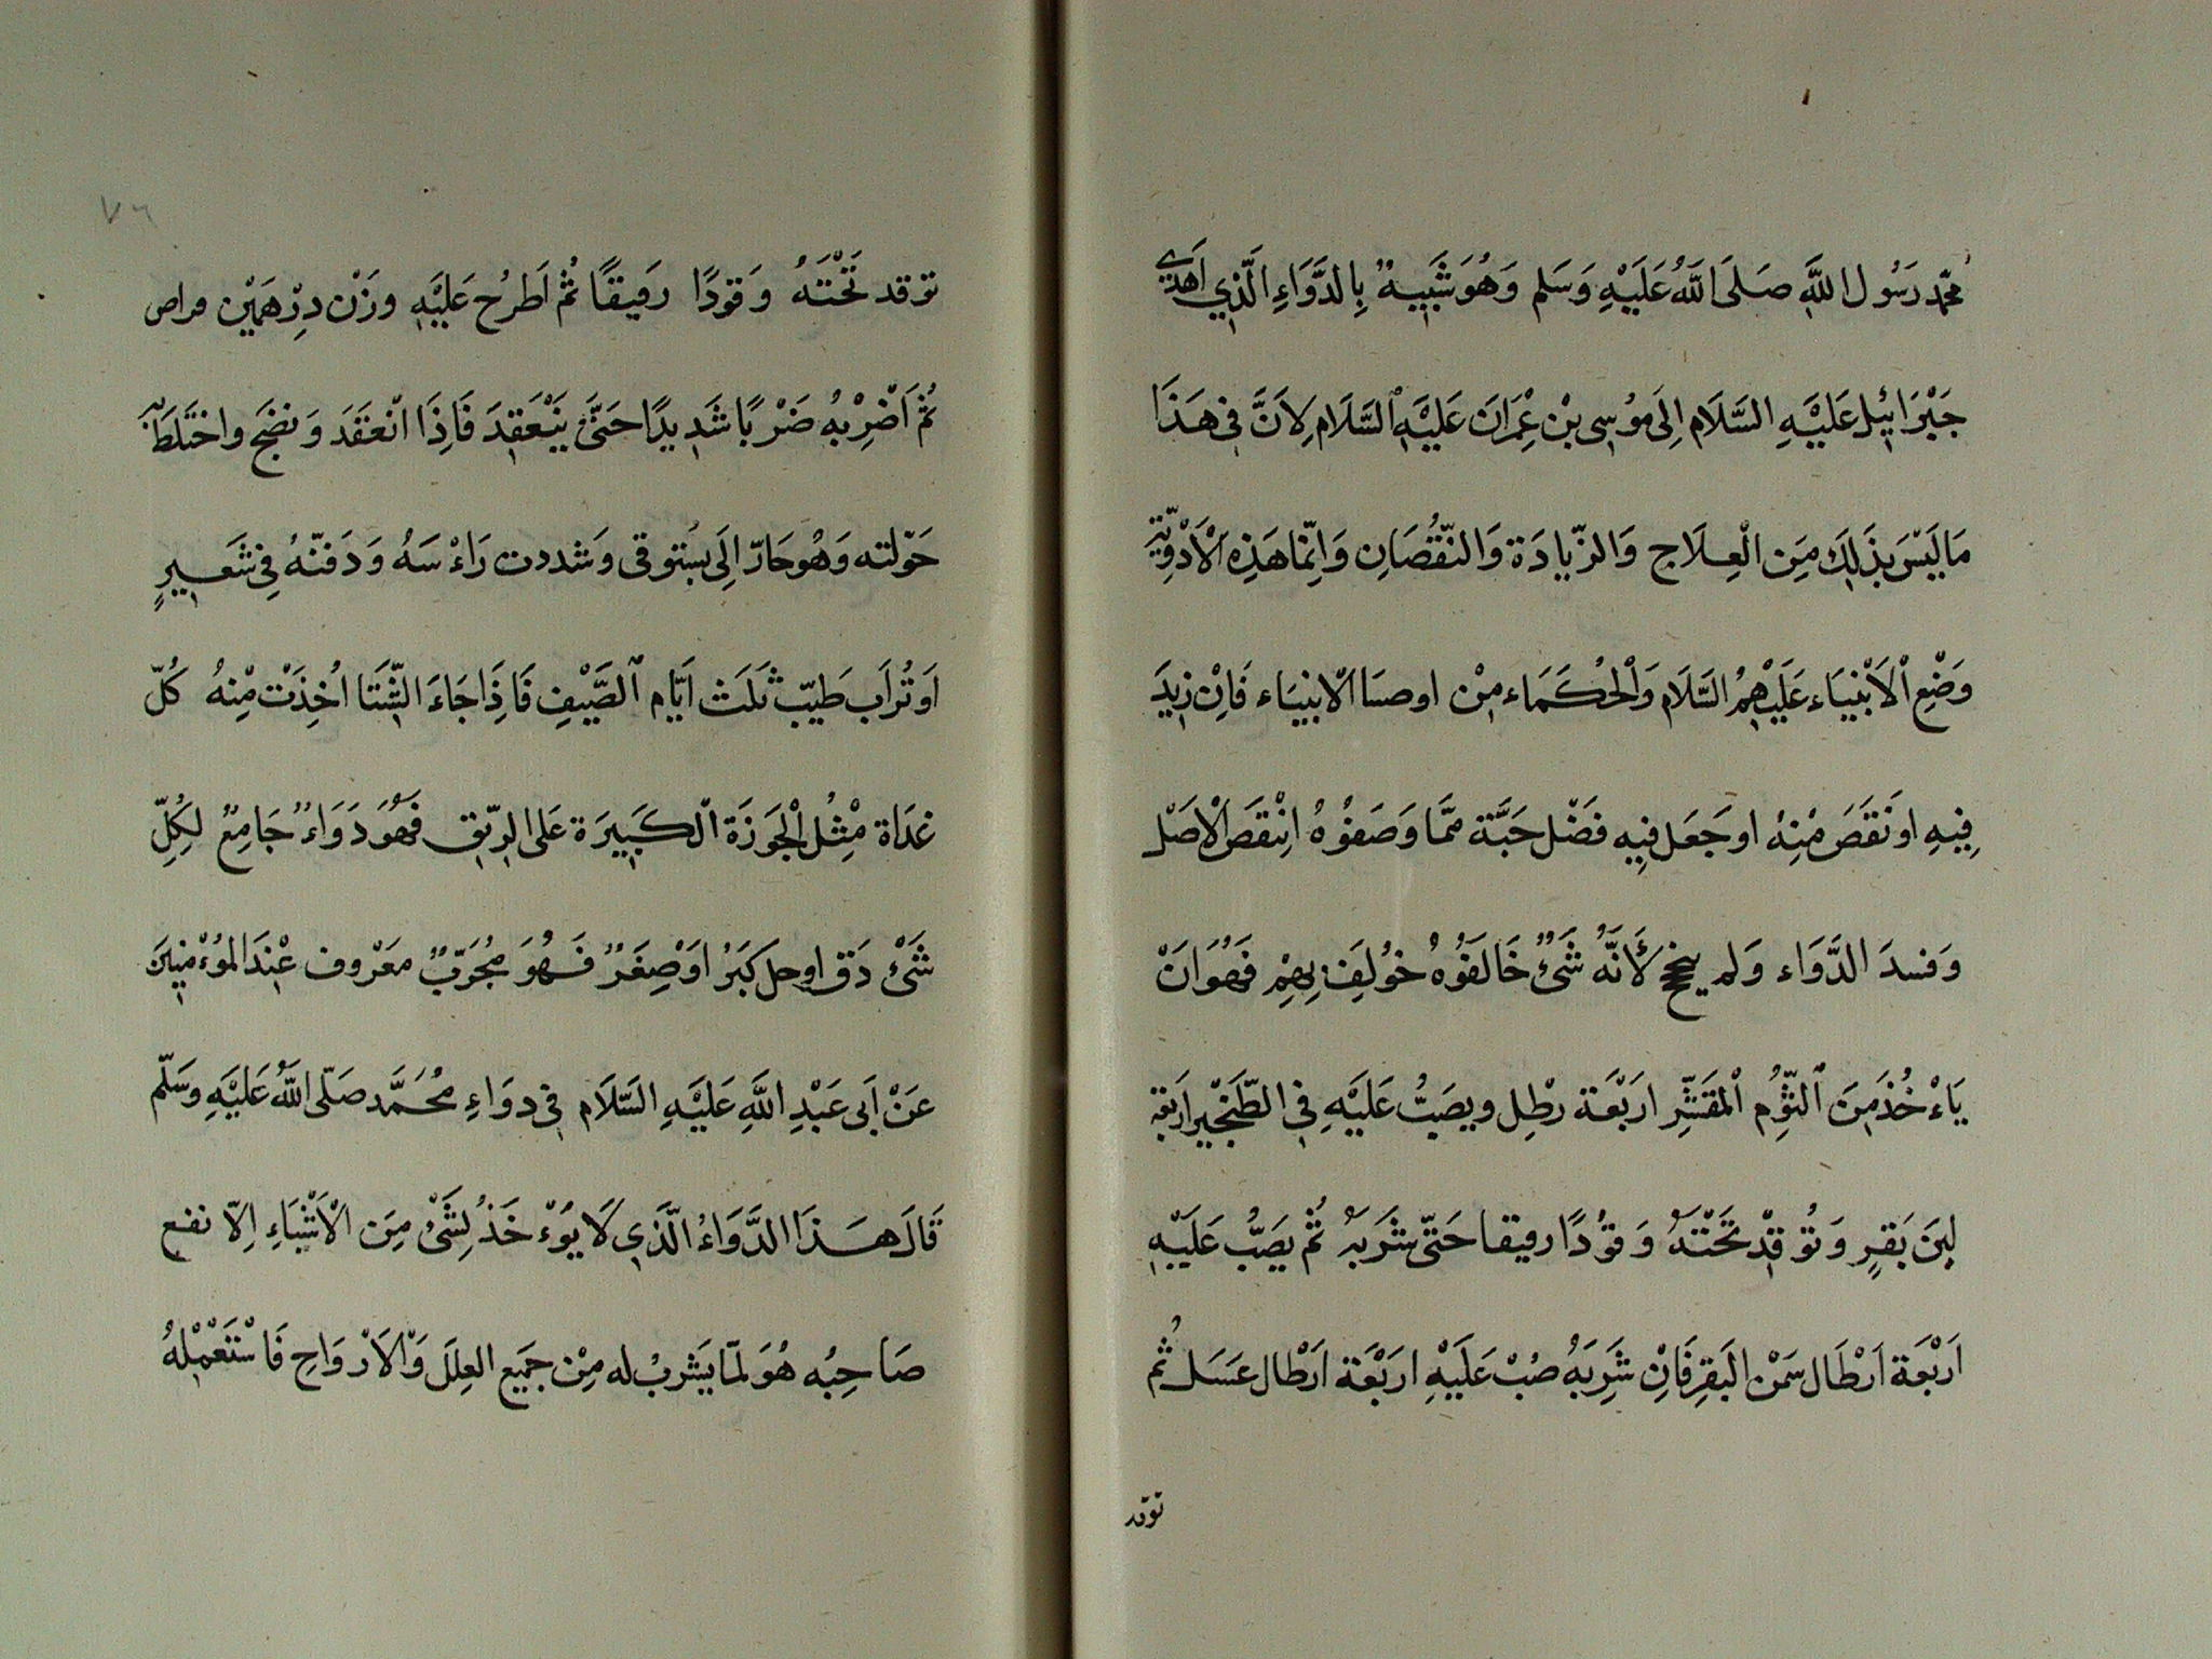 محمّد رَسُول اللَّهِ صَلَى اللَّهُ عَلَيْهِ وَسَلم وَهُوَ شَبَيِهٌ بِالدَّوَاءِ الَّذِي اَهدَى
جَبْرَائيْل عَلَيْهِ السَّلَام اِلَى مُوسى بْن عِمْرَانَ عَلَيْهِ السَّلَام لِاَنَّ فى هَذَا
مَا لَيْسَ بذَلِكَ مِنَ الْعِلَاج وَالزّيادَة وَالنّقْصَانِ وَاِنّمَا هَذِه الْاَدْوِيَّة
وَضْعِ الْاَنْبيَاء عَلَيْهِمُ السَّلَام وَالْحُكَمَاء مِنْ اوصَا الْانبيَاء فَاِنْ زيدَ
فِيهِ او نَقَصَ مْنِهُ او جَعَل فيِه فَضْل حَبَّة ممَّا وَصَفوُهُ انْتقَصَ الْاصَل
وَفسدَ الدَّوَاء وَلم ينجح لأَنّهُ شَىْءٌ خَالَفوُهُ خوُلِفَ بِهِمْ فَهُوَ انَْ
يَاءْخُذ مِنَ الثّوِم الْمقَشّرِ ارَبْعَة رطْلِ ويصَبُّ عَلَيْهِ فِى الطّنَجْيِر ارَبَعَة
لبنَ بَقَرٍ وَتوُقدْ تَحْتَهُ وَقوُدًا رفيقا حَتىّ يشْرَبَهُ ثُم يَصَبُّ عَلَيْهِ
اَربْعَة اَرْطَال سَمْن البَقرِ فَاِنْ شَرِبَهُ صُبْ عَلَيْهِ ارَبْعَة ارَطْال عَسَل ثُم
توقد
٧٦
توقد تَحْتَهُ وَقودًا رَفيقًا ثُم اَطرُح عَليَْهِ وزَنْ درِْهَمَيْن مراص
ثُم اَضْرِبْهُ ضَرْبًا شَديدًا حَتىَّ يَنْعَقِدَ فَاِذَا انْعقَدَ وَنضَج واختَلَطَ
حَوّلته وَهُو حَارّ اِلَى بسُتوقى وَشددت رَاءْسَهُ وَدَفنّهُ فِى شَعيرٍ
اَو تُراَب طَيّب ثلَثَ اَيّام الصَّيْفِ فَاذَِا جَاءَ الشّتَا اُخِذَتْ مْنِهُ كُلّ
غدَاة مْثِل الْجَوزَة الْكَبيرَة عَلى الرّيق فَهُوَ دَوَاءٌ جَامِعٌ لِكُلّ
شَىْءٍ دَق او جل كَبَرُ اوَْ صِغَرٌ فَهُوَ مجُرَبّ معَرْوف عْنِدَ المُوءْمِنينَ
عَنْ اَبى عَبْدِ اللَّهِ عَلَيْهِ السَّلَام فى دوَاءِ مُحَمَّد صَلّى اللَّهُ عَلَيْهِ وسَلّم
قَالَ هَذَا الدَّوَاءُ الّذَي لَا يوُءْخَذ لِشَىْءٍ مِن الْاَشْيَاءِ اِلّا نفع
صَاحِبُه هُوَ لمّا يشَربُ له مِنْ جمَيع العِلَل وَالْاَرْوَاحِ فَاسْتَعْمِلهُ